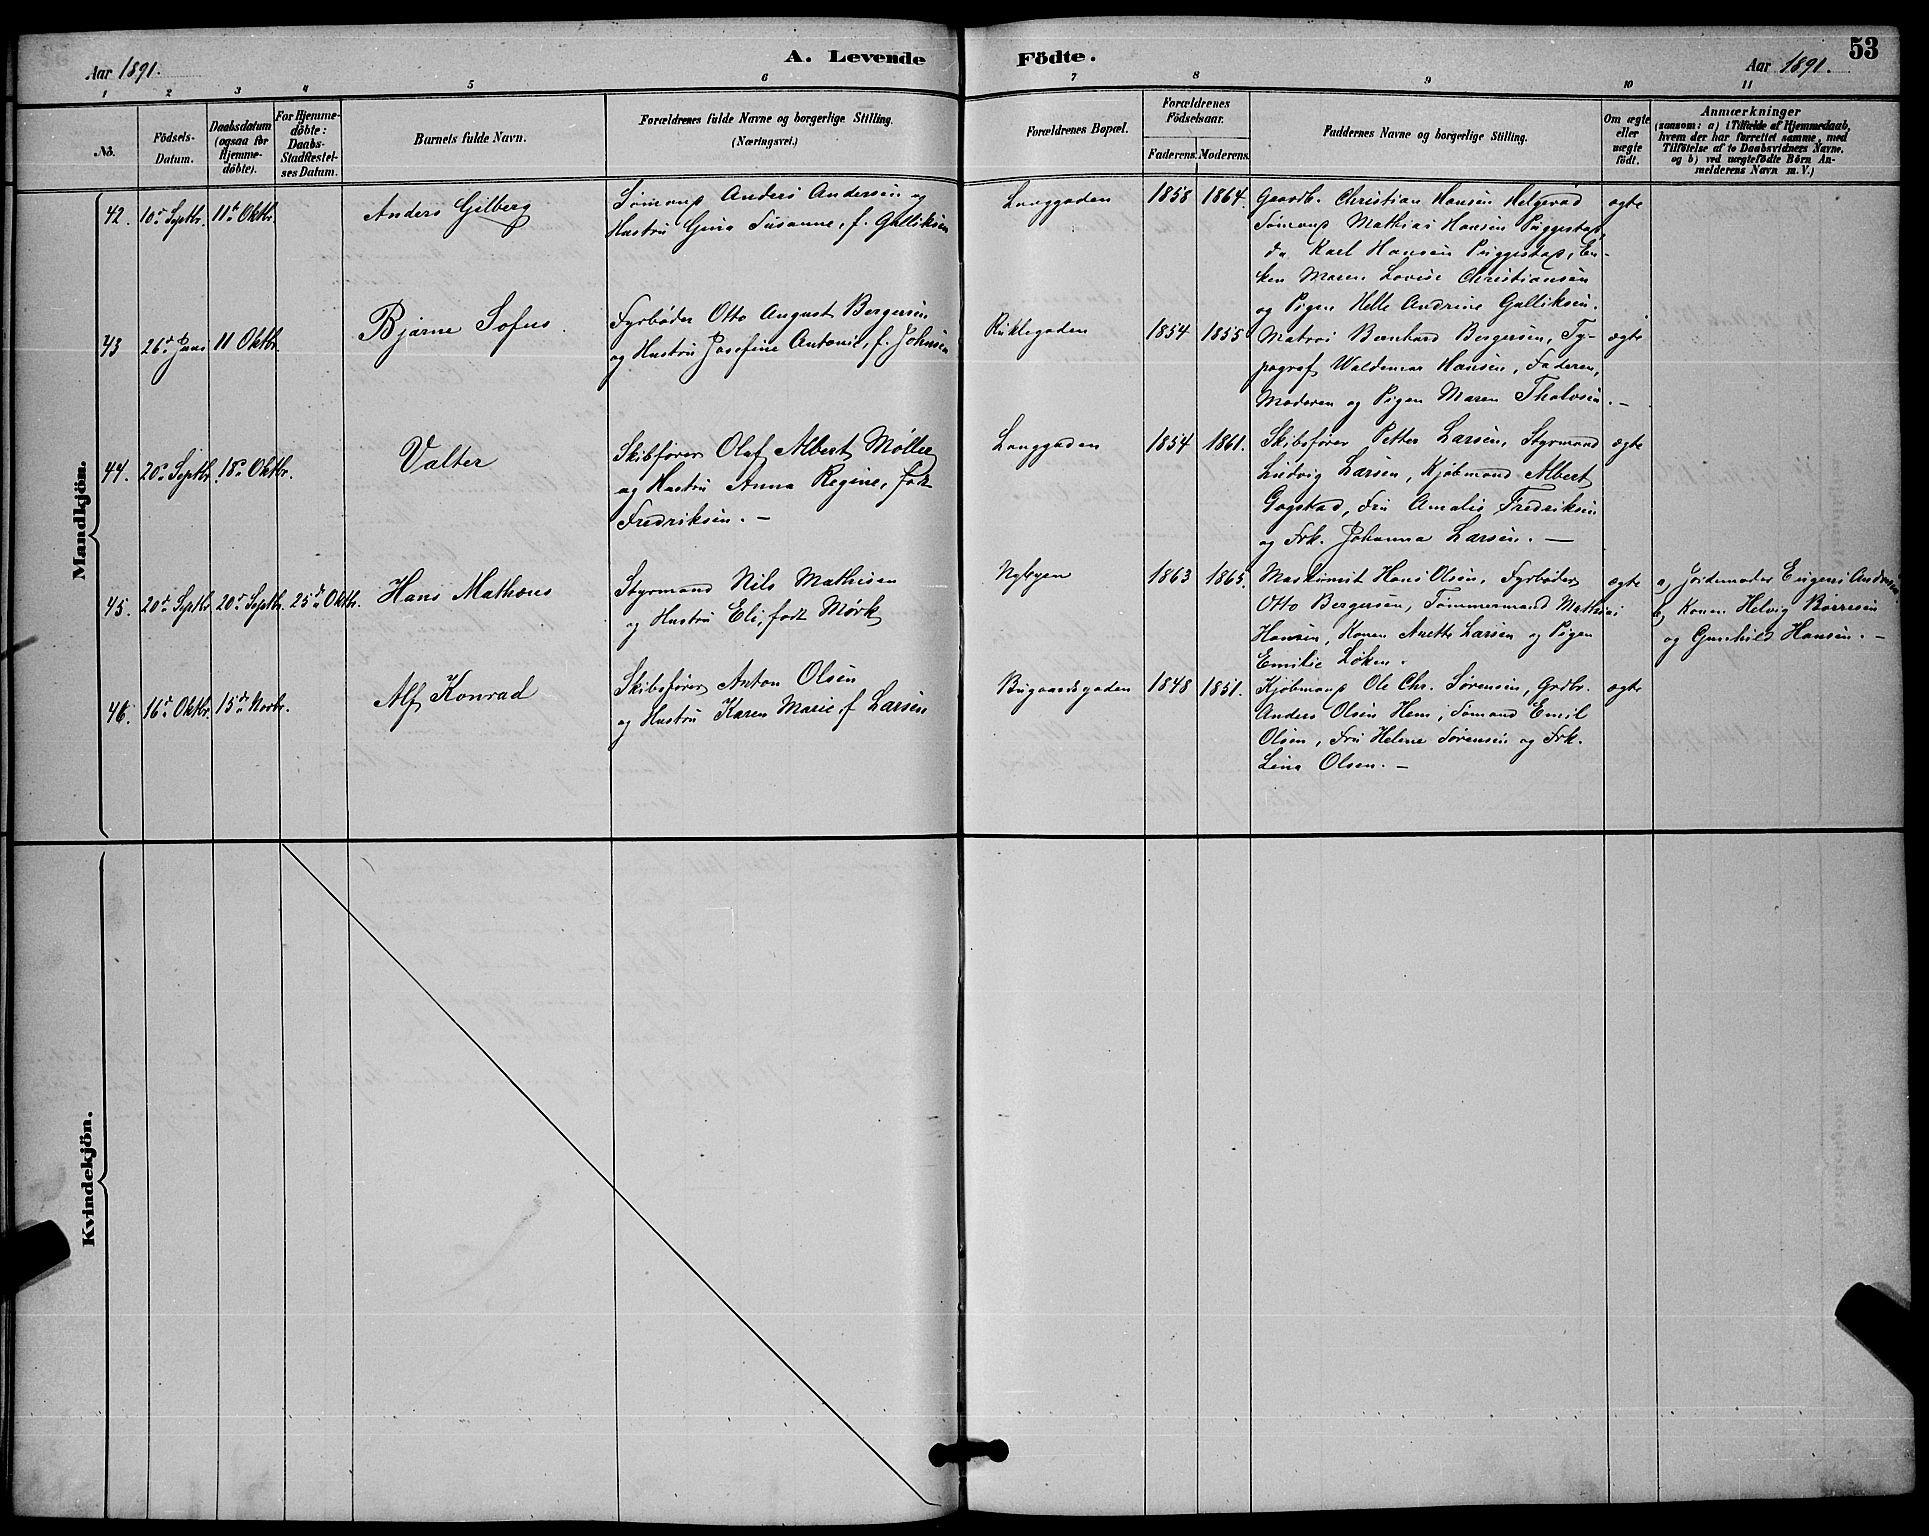 Aar 1891.
A. Levende Födte.
Aar 1891.
53
1 2 3 4 5 6 7 8 9 10 11
No.
Födsels-
Datum.
Daabsdatum
(ogsaa for
Hjemme-
döbte).
For Hjemme-
döbte:
Daabs-
Stadfæstel-
ses Datum.
Barnets fulde Navn.
Forældrenes fulde Navne og borgerlige Stilling.
(Næringsvei.)
Forældrenes Bopæl.
Forældrenes
Födselsaar.
Faderens. Moderens.
Faddernes Navne og borgerlige Stilling.
Om ægte
eller
uægte
födt.
Anmærkninger
(saasom: a) i Tilfælde af Hjemmedaab,
hvem der har forrettet samme, med
Tilföielse af to Daabsvidners Navne.
og b) ved uægtefödte Börn An-
melderens Navn m. V.)
Mandkjön.
42. 10de Septbr. 11te Oktbr.
Anders Gilberg
Sømand Anders Andersen og
Hustru Gina Susanne, f. Gulliksen
Langgaden
1858 1864.
Gaardb. Christian Hansen Helgerød
Sømand Mathias Hansen Piggestad,
do Karl Hansen Piggestad, En-
ken Maren Lovise Christiansen
og Pigen Helle Andrine Gulliksen.
ægte
43 26de Juni 11 Oktbr.
Bjarne Sofus.
Fyrbøder Otto August Bergersen
og Hustru Josefine Antonie, f. Johnsen
1854 1855
Matros Bernhard Bergersen, Ty-
pograf Waldemar Hansen, Faderen,
Moderen og Pigen Maren Tholvsen. —
ægte
44. 20de Septbr. 18de Oktbr.
Valter
Skibsfører Olaf Albert Møller
og Hustru Anna Regine, født
Fredriksen. —
Langgaden
1854 1861.
Skibsfører Petter Larsen, Styrmand
Ludvig Larsen, Kjøbmand Albert
Gogstad, Fru Amalie Fredriksen
og Frk. Johanna Larsen. —
ægte
45. 20de Septbr. 20de Septbr. 25de Oktbr.
Hans Mathæus
Styrmand Nils Mathisen
og Hustru Eli, født Mørk
Nybyen
1863 1865.
Maskinist Hans Olsen, Fyrbøder
Otto Bergersen, Tømmermand Mathias
Hansen, Konen Anette Larsen og Pigen
Emilie Løken.
ægte
a, Jordemoder Eugenie Andersen.
b, Konen Helvig Børresen
og Gunhild Hansen. —
46. 16de Oktbr. 15de Novbr.
Alf Konrad
Skibsfører Anton Olsen
og Hustru Karen Marie f Larsen
Bugaardsgaden
1848 1851.
Kjøbmand Ole Chr. Sørensen, Grdbr.
Anders Olsen Hem, Sømand Emil
Olsen, Fru Helene Sørensen og Frk.
Lina Olsen. —
ægte
Kvindekjön.